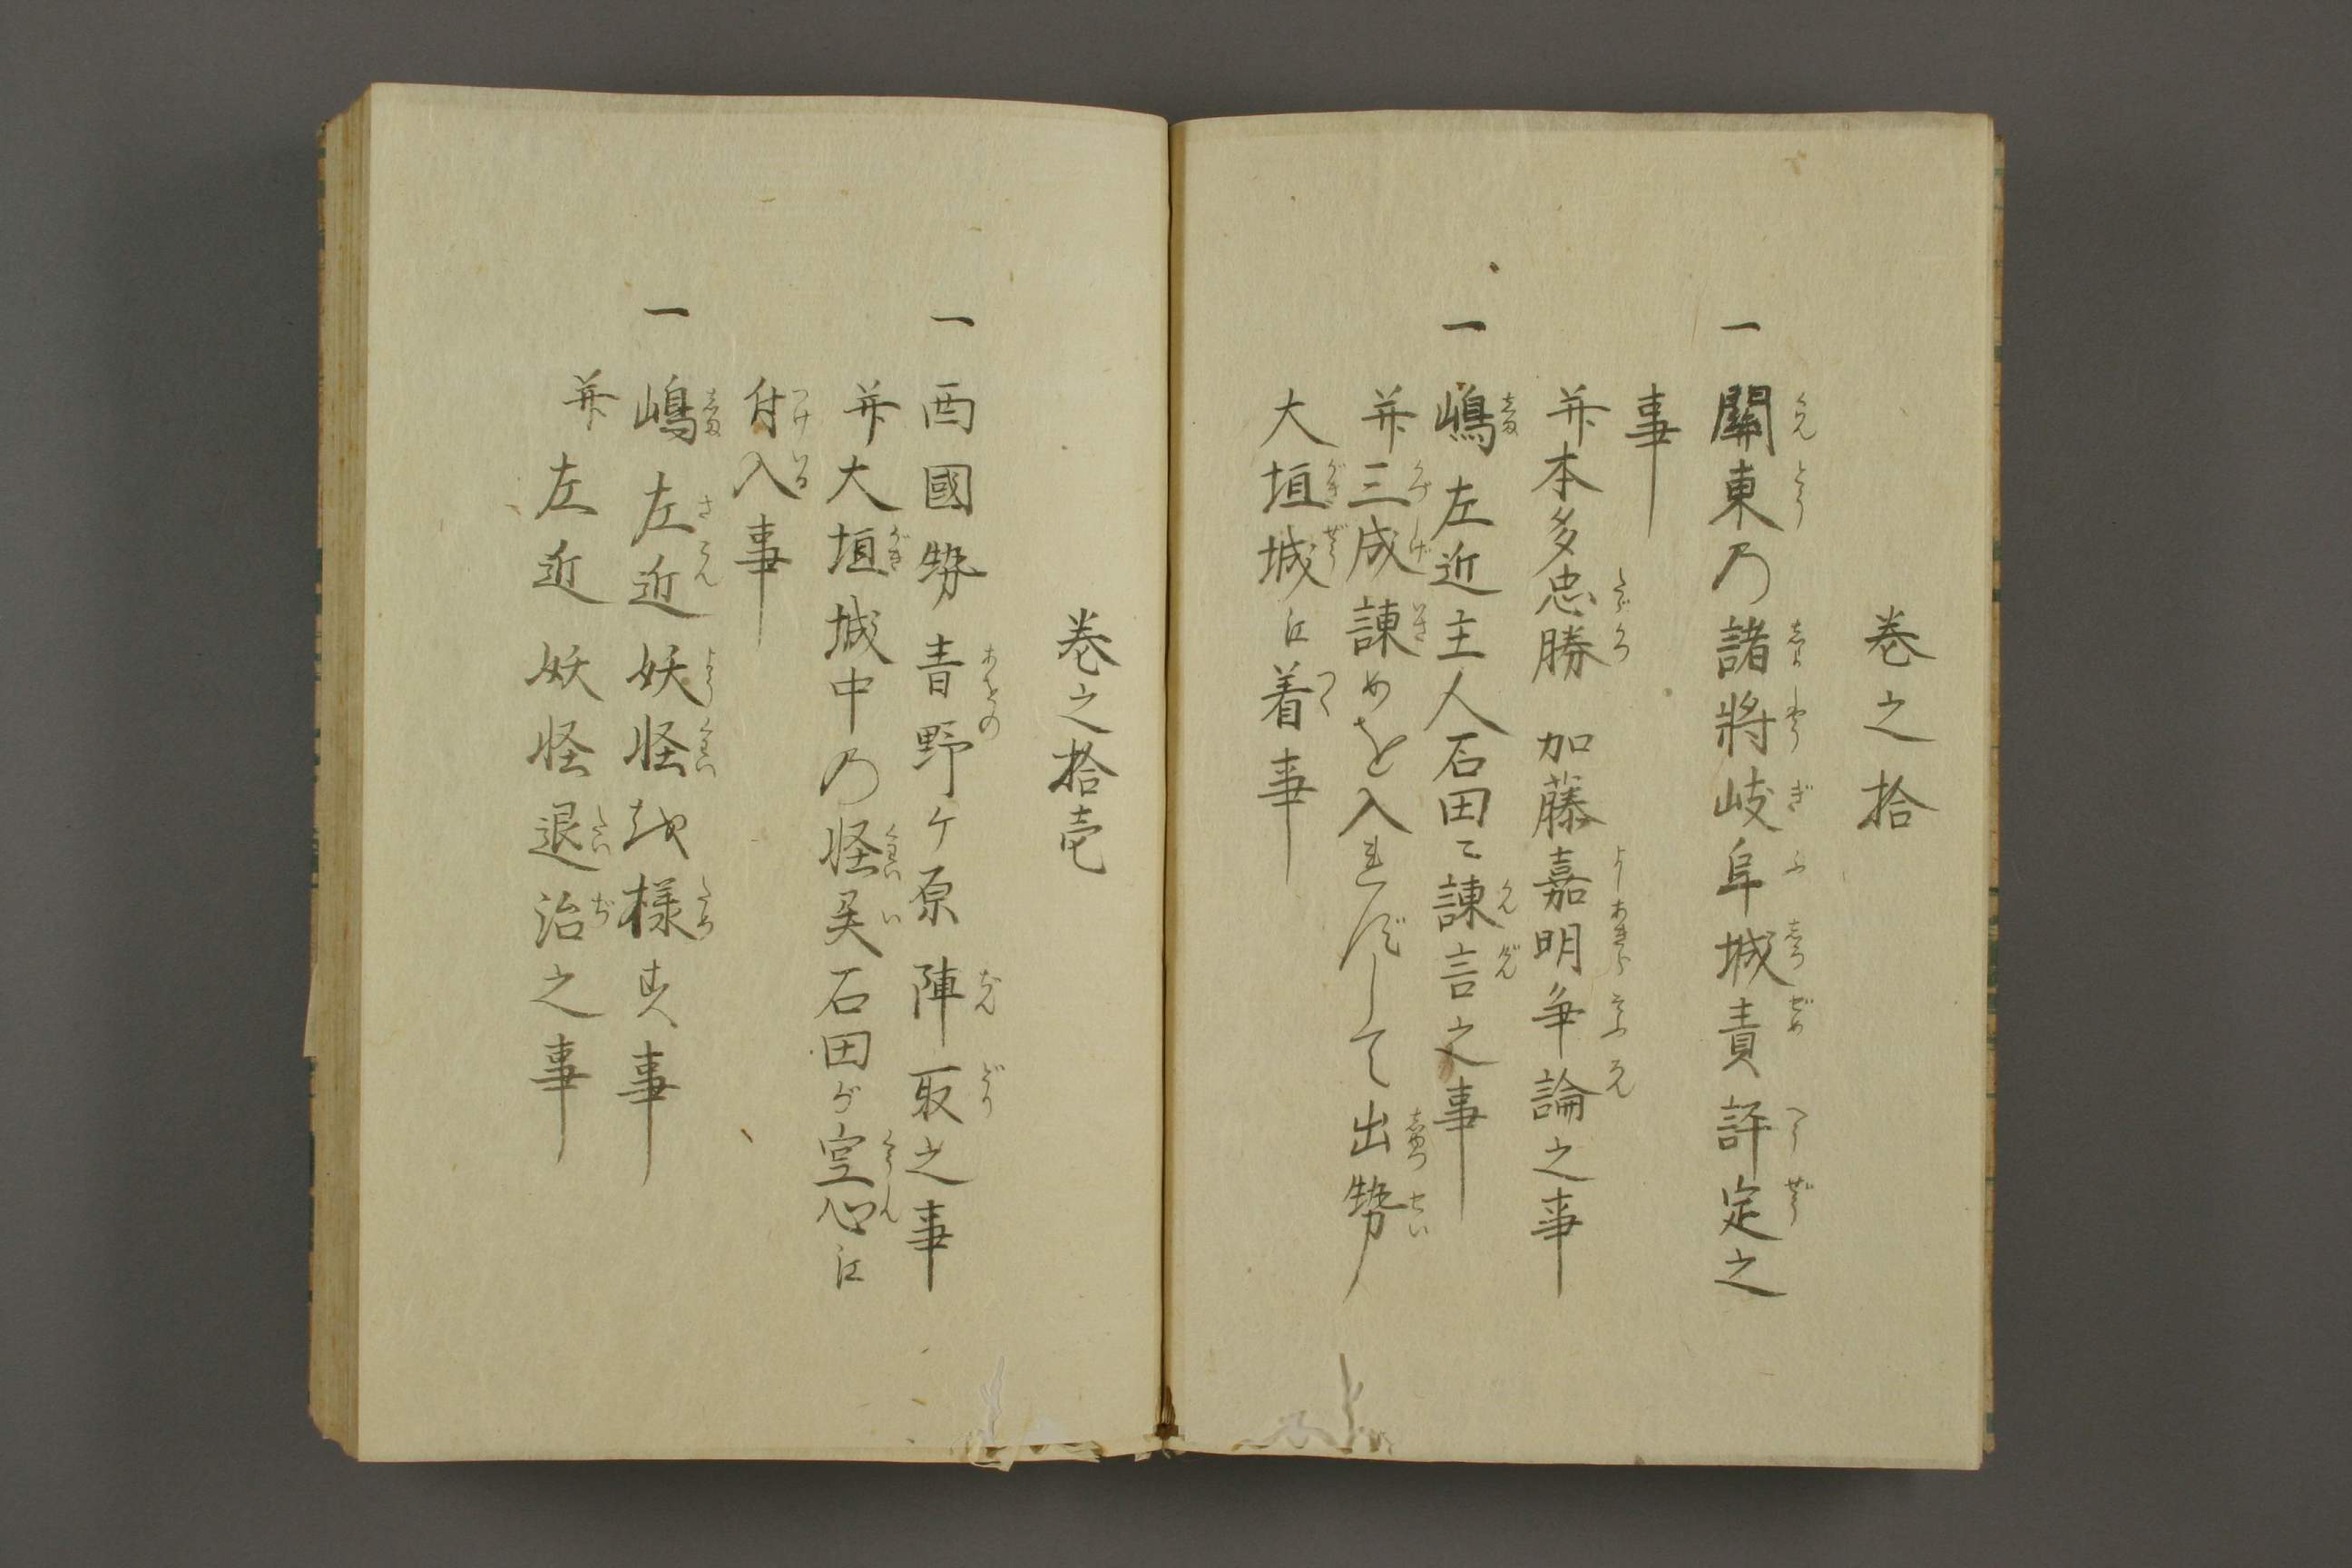 巻之拾
一 關東乃諸將岐阜城責評定之
事
并本多忠勝 加藤嘉明争論之事
一 嶋左近主人石田ニ諌言之事
并三成諌めを入れずして出勢
大垣城江着事
巻之拾壱
一 西國勢青野ケ原陣取之事
并大垣城中乃怪異石田が空心江
付入事
一 嶋左近妖怪越様す事
并左近妖怪退治之事